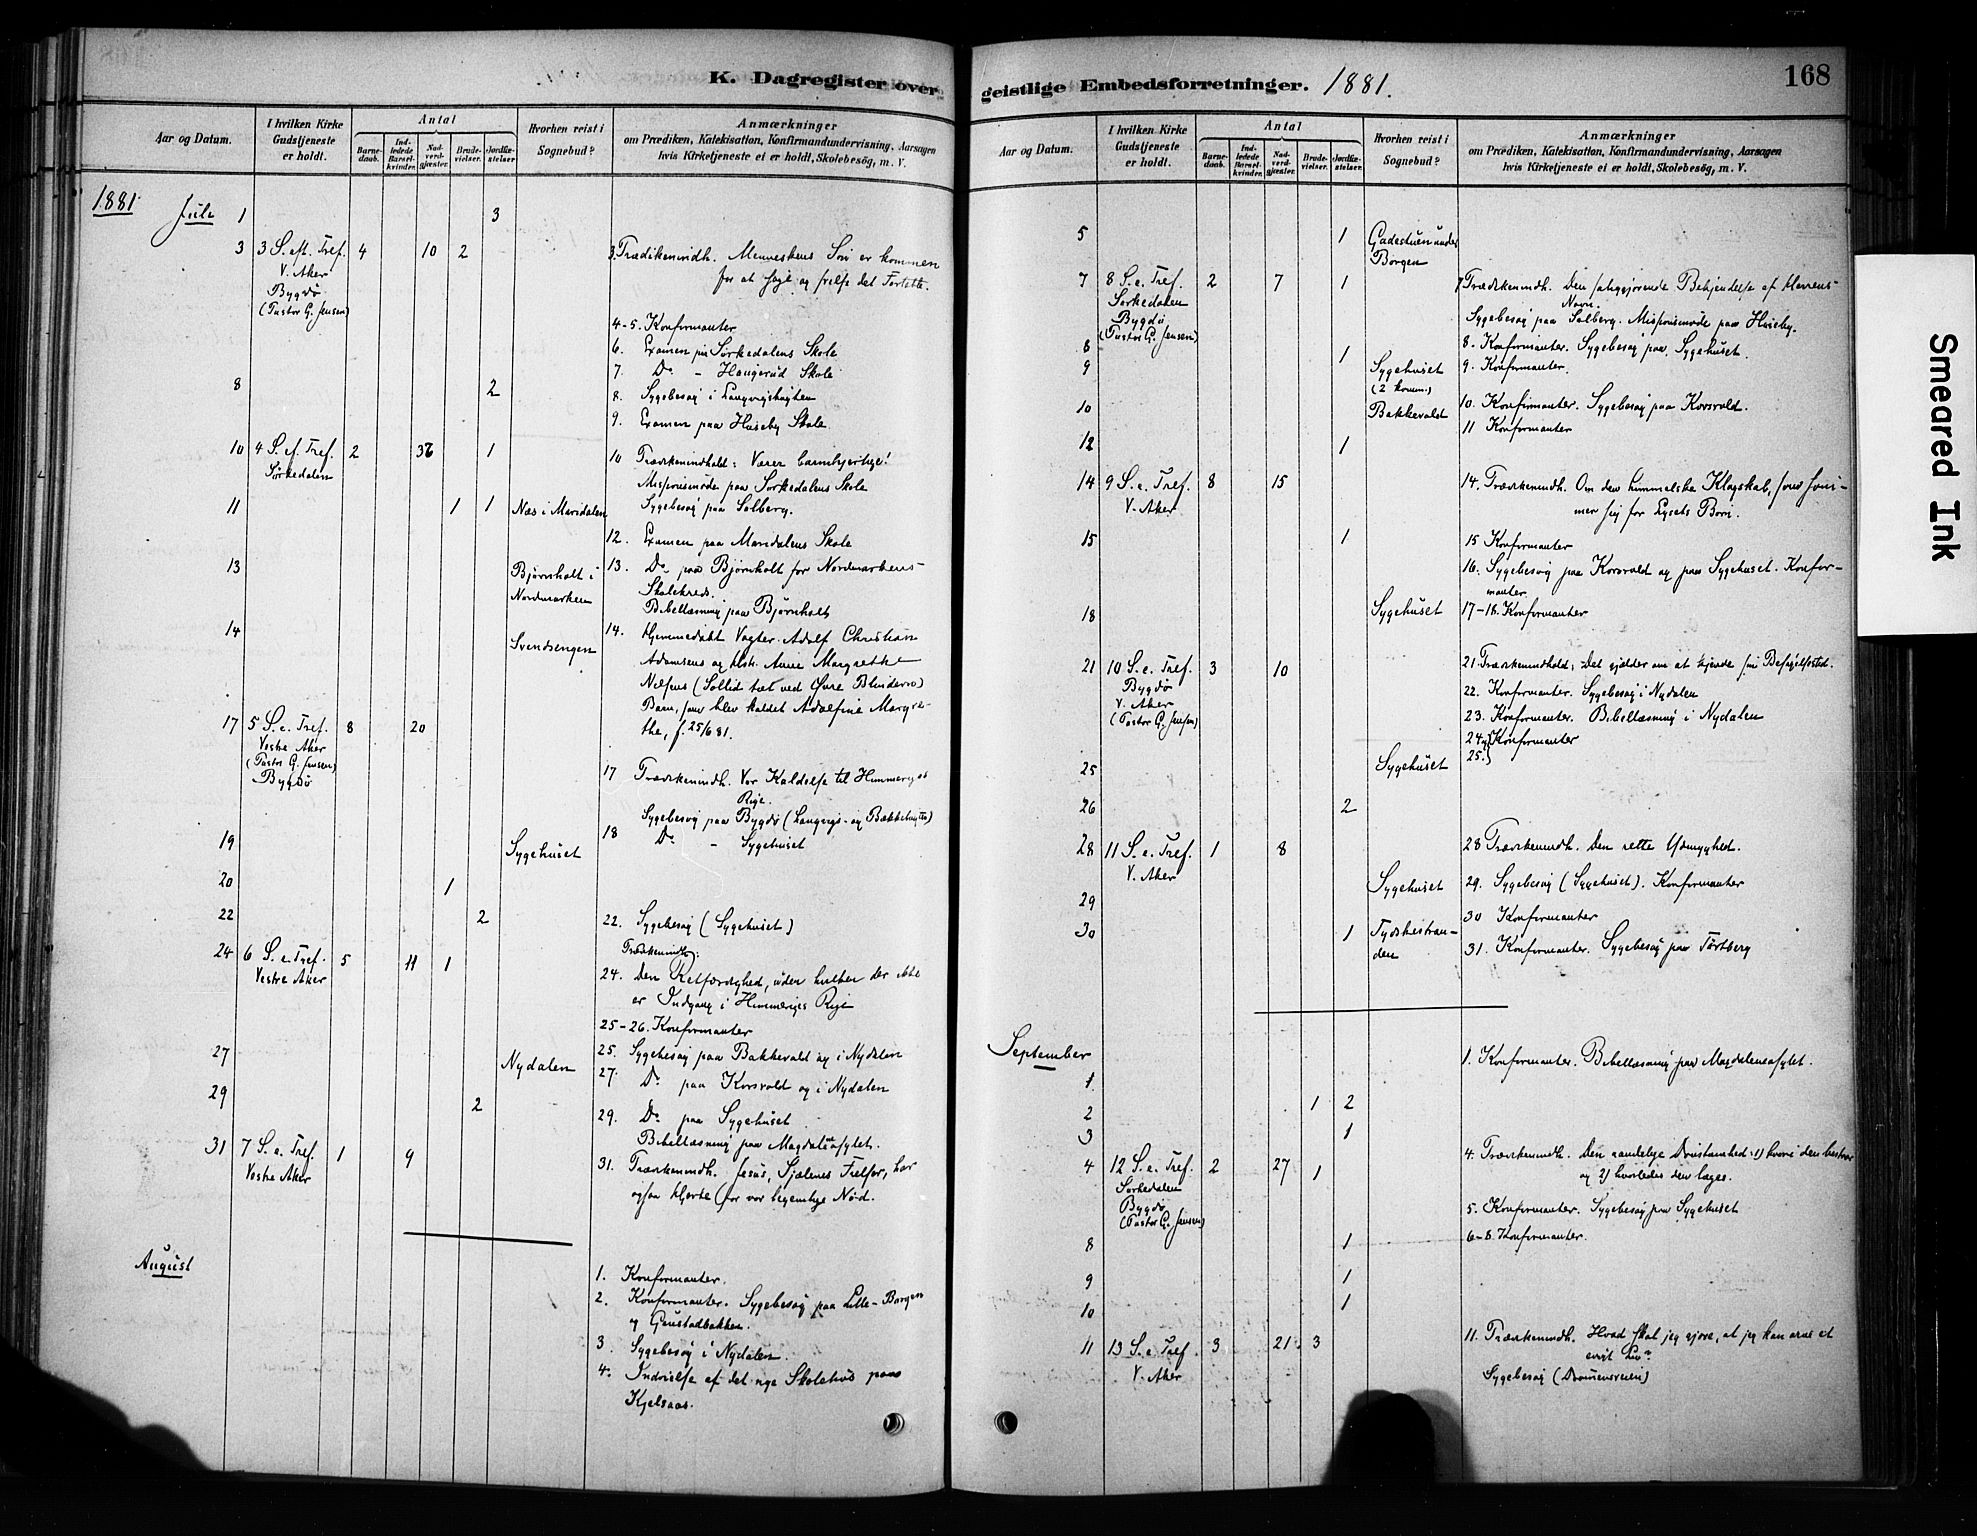 K. Dagregister over
Aar og Datum.
I hvilken Kirke
Gudstjeneste
er holdt.
Antal
Barne-
daab.
Ind-
ledede
Barsel-
kvinder.
Nad-
verd-
gjæster.
Brude-
vielser.
Jordfæ-
stelser
Hvorhen reist i
Sognebud?
Anmærkninger
om Prædiken, Katekisation, Konfirmandundervisning, Aarsagen
hvis Kirketjeneste ei er holdt, Skolebesøg, m. V.
1881 Juli 1 3
3 3 S. eft. Tref. 4 10 2 3. Prædikenindh. Menneskens Søn er kommen
V. Aker for at søge og frelse det Fortabte.
Bygdø
(Pastor G. Jensen)
4-5. Konfirmanter
6. Examen paa Sørkedalens Skole
7. Do - Haugerud Skole
8 2 8. Sygebesøg i
9. Examen paa Huseby Skole
10 4 S. ef. Tref. 2 36 1 10 Præd­kenindhold: Værer barmhjertige!
Sørkedalen Missionsmøde paa Sørkedalens Skole
11 1 1 Næs i Maridalen Sygebesøg paa Solberg.
12. Examen paa Maridalens Skole
13 Bjørnholt i 13. Do paa Bjørnholt for Nordmarkens-
Nordmarken Skolekreds.
Bibellæsning paa Bjørnholt
14 Svendsengen 14. Hjemmedøbt Vogter Adolf Christian
Adamsens og Hstr. Anne Margrethe
Nilsens (Sollid tæt ved Øvre Blindern)
Barn, som blev kaldet Adolfine Margre-
the, f. 25/6 81.
17 5 S. e. Tref. 8 20
Vestre Aker
(Pastor G. Jensen)
Bygdø
17 Prædikenindh. Vor Kaldelse til Himmeriges
Rige.
Sygebesøg paa Bygdø (Langvigs- og Bækkehugten)
18 Do - Sygehuset
19 Sygehuset
20 1
22 2 22. Sygebesøg (Sygehuset)
Prædikenindh.:
24 6 S. e. Tref. 5 11 1 24. Den Retfærdighed, uden hvilken der ikke
Vestre Aker er Indgang i Himmeriges Rige
25-26. Konfirmanter
27 Nydalen 25. Sygebesøg paa Bakkevold og i Nydalen
27. Do paa Korsvold og i Nydalen
29 2 29. Do paa Sygehuset
Bibellæsning paa Magdaleneasylet.
31 7 S. e. Tref. 1 9 31. Prædikenindh. Jesus, Sjælenes Frelser, har
Vestre Aker ogsaa Hjerte for vor legemlige Nød.
August
1. Konfirmanter.
2. Konfirmanter. Sygebesøg paa Lille-Borgen
og Gaustadbakken.
3. Sygebesøg i Nydalen.
4. Indvielse af det nye Skolehus paa
Kjelsaas.
geistlige Embedsforretninger. 1881. 168
Aar og Datum.
I hvilken Kirke
Gudstjeneste
er holdt.
Antal
Barne-
daab.
Ind-
ledede
Barsel-
kvinder.
Nad-
verd-
gjæster.
Brude-
vielser.
Jordfæ-
stelser.
Hvorhen reist i
Sognebud?
Anmærkninger
om Prædiken, Katekisation, Konfirmandundervisning, Aarsagen
hvis Kirketjeneste ei er holdt, Skolebesøg, m. V.
5 1 Gadestuen under
Borgen
7 8 S. e. Tref. 2 7 1 7 Prædikenindh. Den saliggjørende Bekjendelse af Herrens
Sørkedalen Navn.
Bygdø Sygebesøg paa Solberg. Missionsmøde paa Huseby.
(Pastor G. Jensen)
8 1 8. Konfirmanter. Sygebesøg paa Sygehuset.
9 Sygehuset 9. Konfirmanter.
(2 komm.)
10 Bakkevold 10. Konfirmanter. Sygebesøg paa Korsvold.
11 Konfirmanter
12 1
14 9 S. e. Tref. 8 15 14. Prædikenindh. Om den himmelske Klogskab, som søm-
V. Aker mer sig for Lysets Børn.
15 1 15 Konfirmanter
16. Sygebesøg paa Korsvold og paa Sygehuset. Konfir-
manter
18 Sygehuset 17-18. Konfirmanter
21 10 S. e. Tref. 3 10 21. Prædikenindhold: Det gjælder om at kjende sin Besøgelsestid.
Bygdø 22. Konfirmanter. Sygebesøg i Nydalen
V. Aker 23. Konfirmanter. Bibellæsning i Nydalen
(Pastor G. Jensen) 24 og Konfirmanter
25 Sygehuset 25.
26 2
28 11 S. e. Tref. 1 8 28 Prædikenindh. Den rette Ydmyghed.
V. Aker
29 Sygehuset 29. Sygebesøg (Sygehuset). Konfirmanter
30 1 Tydskestran- 30 Konfirmanter
den 31. Konfirmanter. Sygebesøg paa Tørtberg
September
1 1. Konfirmanter. Bibellæsning paa Magdaleneasylet.
2 1 2
3 1
4 12 S. e. Tref. 2 27 1 4. Prædikenindh. Den aandelige Døvstumhed: 1) hvori den bestaar
Sørkedalen og 2) hvorledes den læges.
Bygdø 5. Konfirmanter. Sygebesøg paa Sygehuset
(Pastor G. Jensen)
8 1 6-8. Konfirmanter.
9 1
10 1
11 13 S. e. Tref. 3 21 3 11. Prædikenindh. Hvad skal jeg gjøre, at jeg kan arve et
V. Aker evigt Liv?
Sygebesøg (Drammensveien)
Smeared Ink